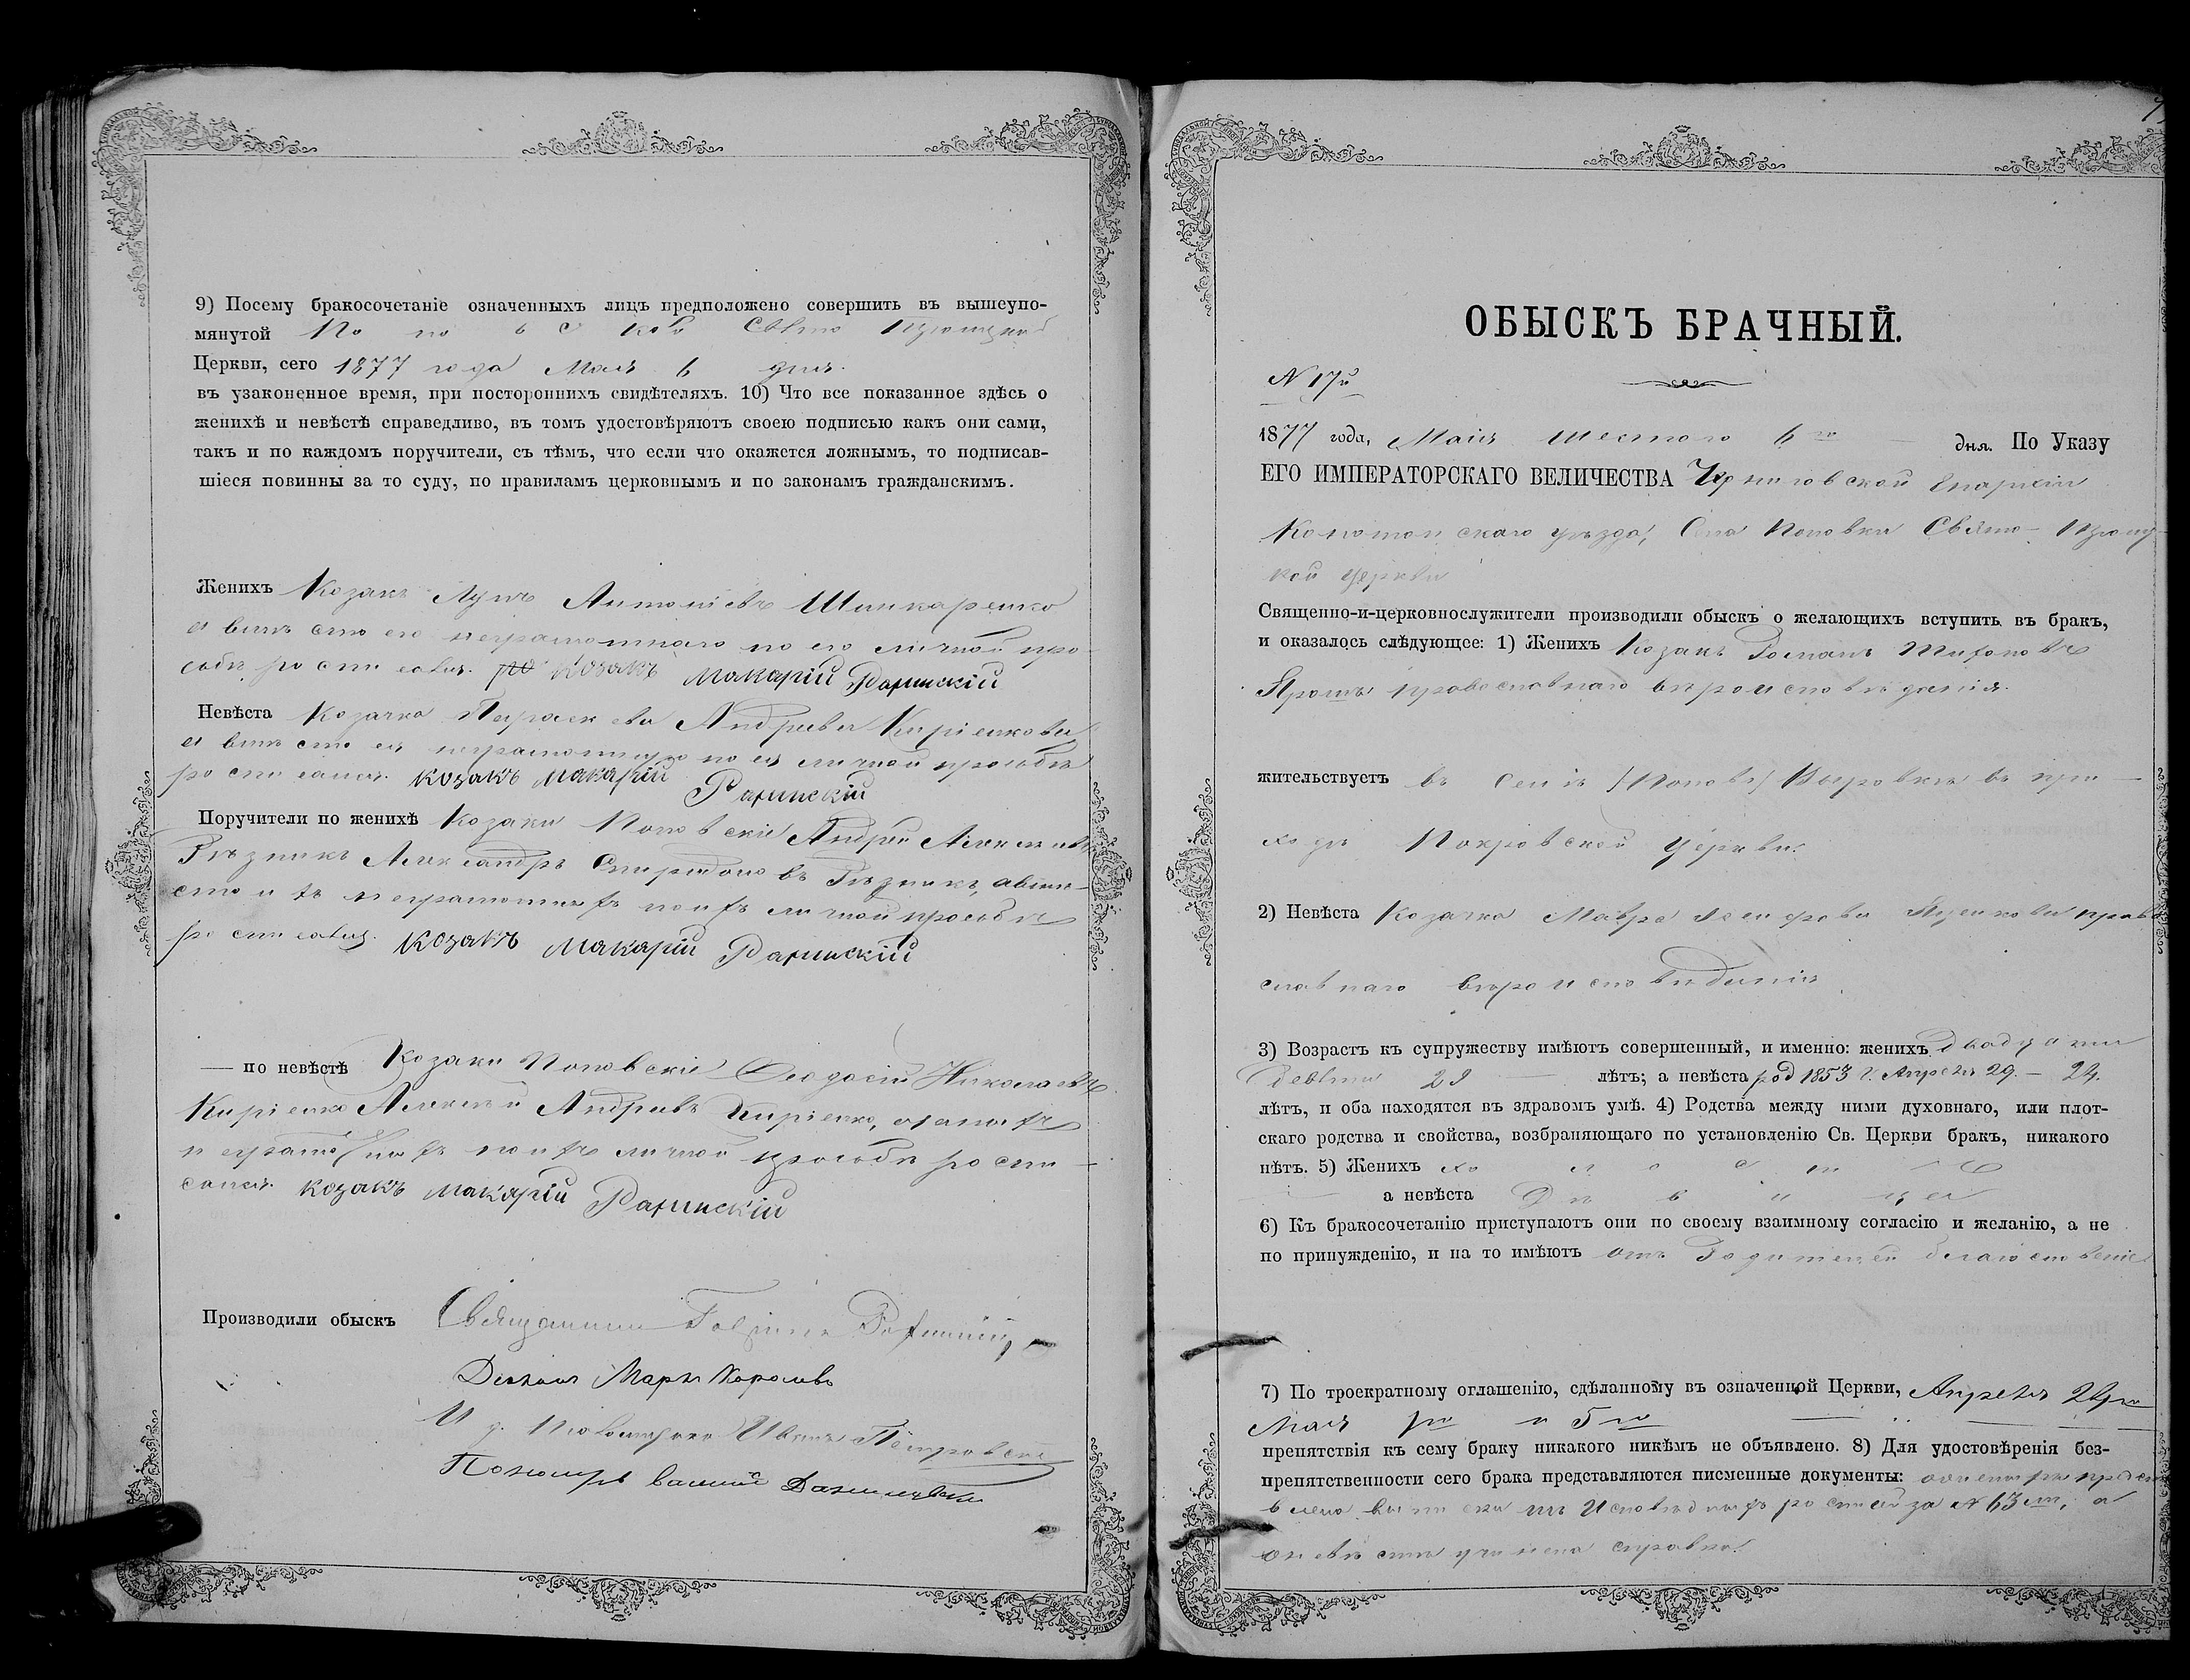 9) Посему бракосочетаніе означенныхъ лицъ предположено совершить въ вышеупо-
мянутой Поповской Свято Троицкой
Церкви, сего 1877 года Мая 6 дня.
въ узаконенное время, при постороннихъ свидѣтеляхъ. 10) Что все показанное здѣсь о
женихѣ и невѣстѣ справедливо, въ томъ удостовѣряютъ своею подписью какъ они сами,
такъ и по каждомъ поручители, съ тѣмъ, что если что окажется ложнымъ, то подписав-
шіеся повинны за то суду, по правиламъ церковнымъ и по законамъ гражданскимъ.
Женихъ Козакъ Лупъ Антоніевъ Шинкаренко
а вмѣсто его неграмотнаго по его личной про-
сьбѣ росписался козакъ Макарій
Невѣста Козачка Параскева Андреева Киріенкова
а вмѣсто ея неграмотной по ея личной просьбѣ
росписался козакъ Макарій
Поручители по женихѣ Козаки Поповскіе Андрей Алексѣевъ
Рѣзникъ Александръ Спиридоновъ Рѣзникъ, а вмѣ-
сто ихъ неграмотныхъ по ихъ личной просьбѣ
росписался козакъ Макарій
— по невѣстѣ Козаки Поповскіе Ѳеодосій Николаевъ
Киріенко Алексѣй Андреевъ Киріенко, а за нихъ
неграмотныхъ по ихъ личной просьбѣ роспи-
сался козакъ Макарій
Производили обыскъ Священникъ
Діаконъ Маркъ
И. д. Псаломщика Иванъ Петровскій
Пономарь Василій
ОБЫСКЪ БРАЧНЫЙ.
N 17й
1877 года, Мая шестого 6го дня. По Указу
ЕГО ИМПЕРАТОРСКАГО ВЕЛИЧЕСТВА Черниговской Епархіи
Конотопскаго уѣзда, Села Поповки Свято-Троиц-
кой Церкви
Священно-и-церковнослужители производили обыскъ о желающихъ вступить въ бракъ,
и оказалось слѣдующее: 1) Женихъ Козакъ Романъ Тихоновъ
Ярошъ православнаго вѣроисповѣданія.
жительствуетъ въ селѣ Выровкѣ въ при-
ходѣ Покровской Церкви.
2) Невѣста Козачка Мавра право
славнаго вѣроисповѣданія
3) Возрастъ къ супружеству имѣютъ совершенный, и именно: женихъ двадцати
девяти 29 — лѣтъ; а невѣста род 1853 г. Апрѣля 29. — 24.
лѣтъ, и оба находятся въ здравомъ умѣ. 4) Родства между ними духовнаго, или плот-
скаго родства и свойства, возбраняющаго по установленію Св. Церкви бракъ, никакого
нѣтъ. 5) Женихъ холостъ
а невѣста Дѣвица
6) Къ бракосочетанію приступаютъ они по своему взаимному согласію и желанію, а не
по принужденію, и на то имѣютъ отъ Родителей благословеніе
7) По троекратному оглашенію, сдѣланному въ означенной Церкви, Апрѣля 24го
Мая 1го и 5го
препятствія къ сему браку никакого никѣмъ не объявлено. 8) Для удостовѣренія без-
препятственности сего брака представляются писменные документы: о женихѣ предста
влена выписка изъ Исповѣдныхъ росписей за N 63м, а
о невѣстѣ учинена справка.